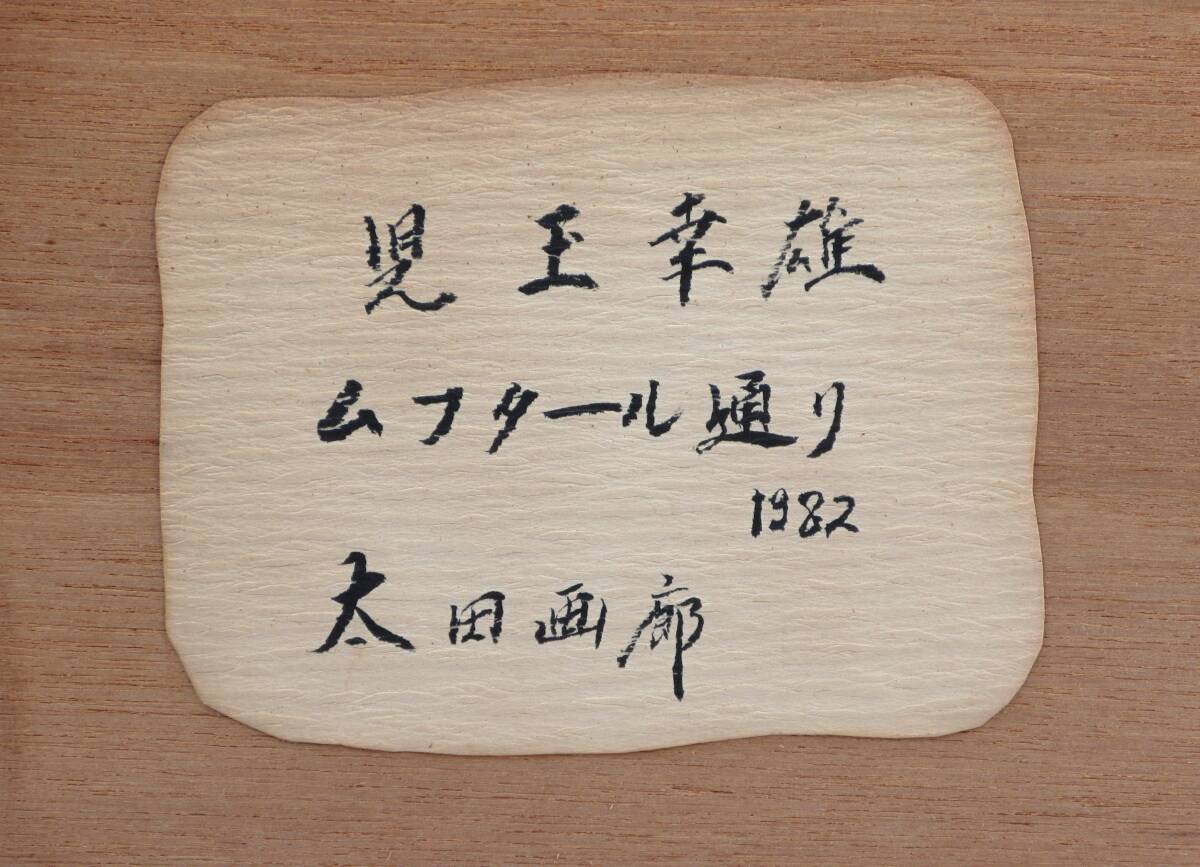 児玉幸雄
ムフタール通り
1982
太田画廊